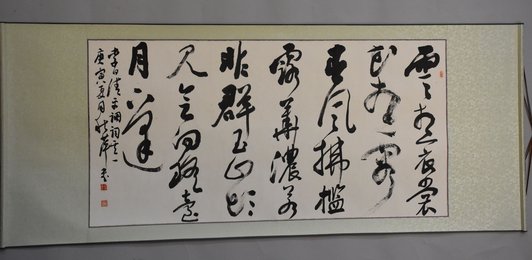 雲想衣裳
花想容
春風拂檻
露華濃若
非群玉山頭
見會向瑤臺
月下逢
李白清平調詞一
庚寅夏月書